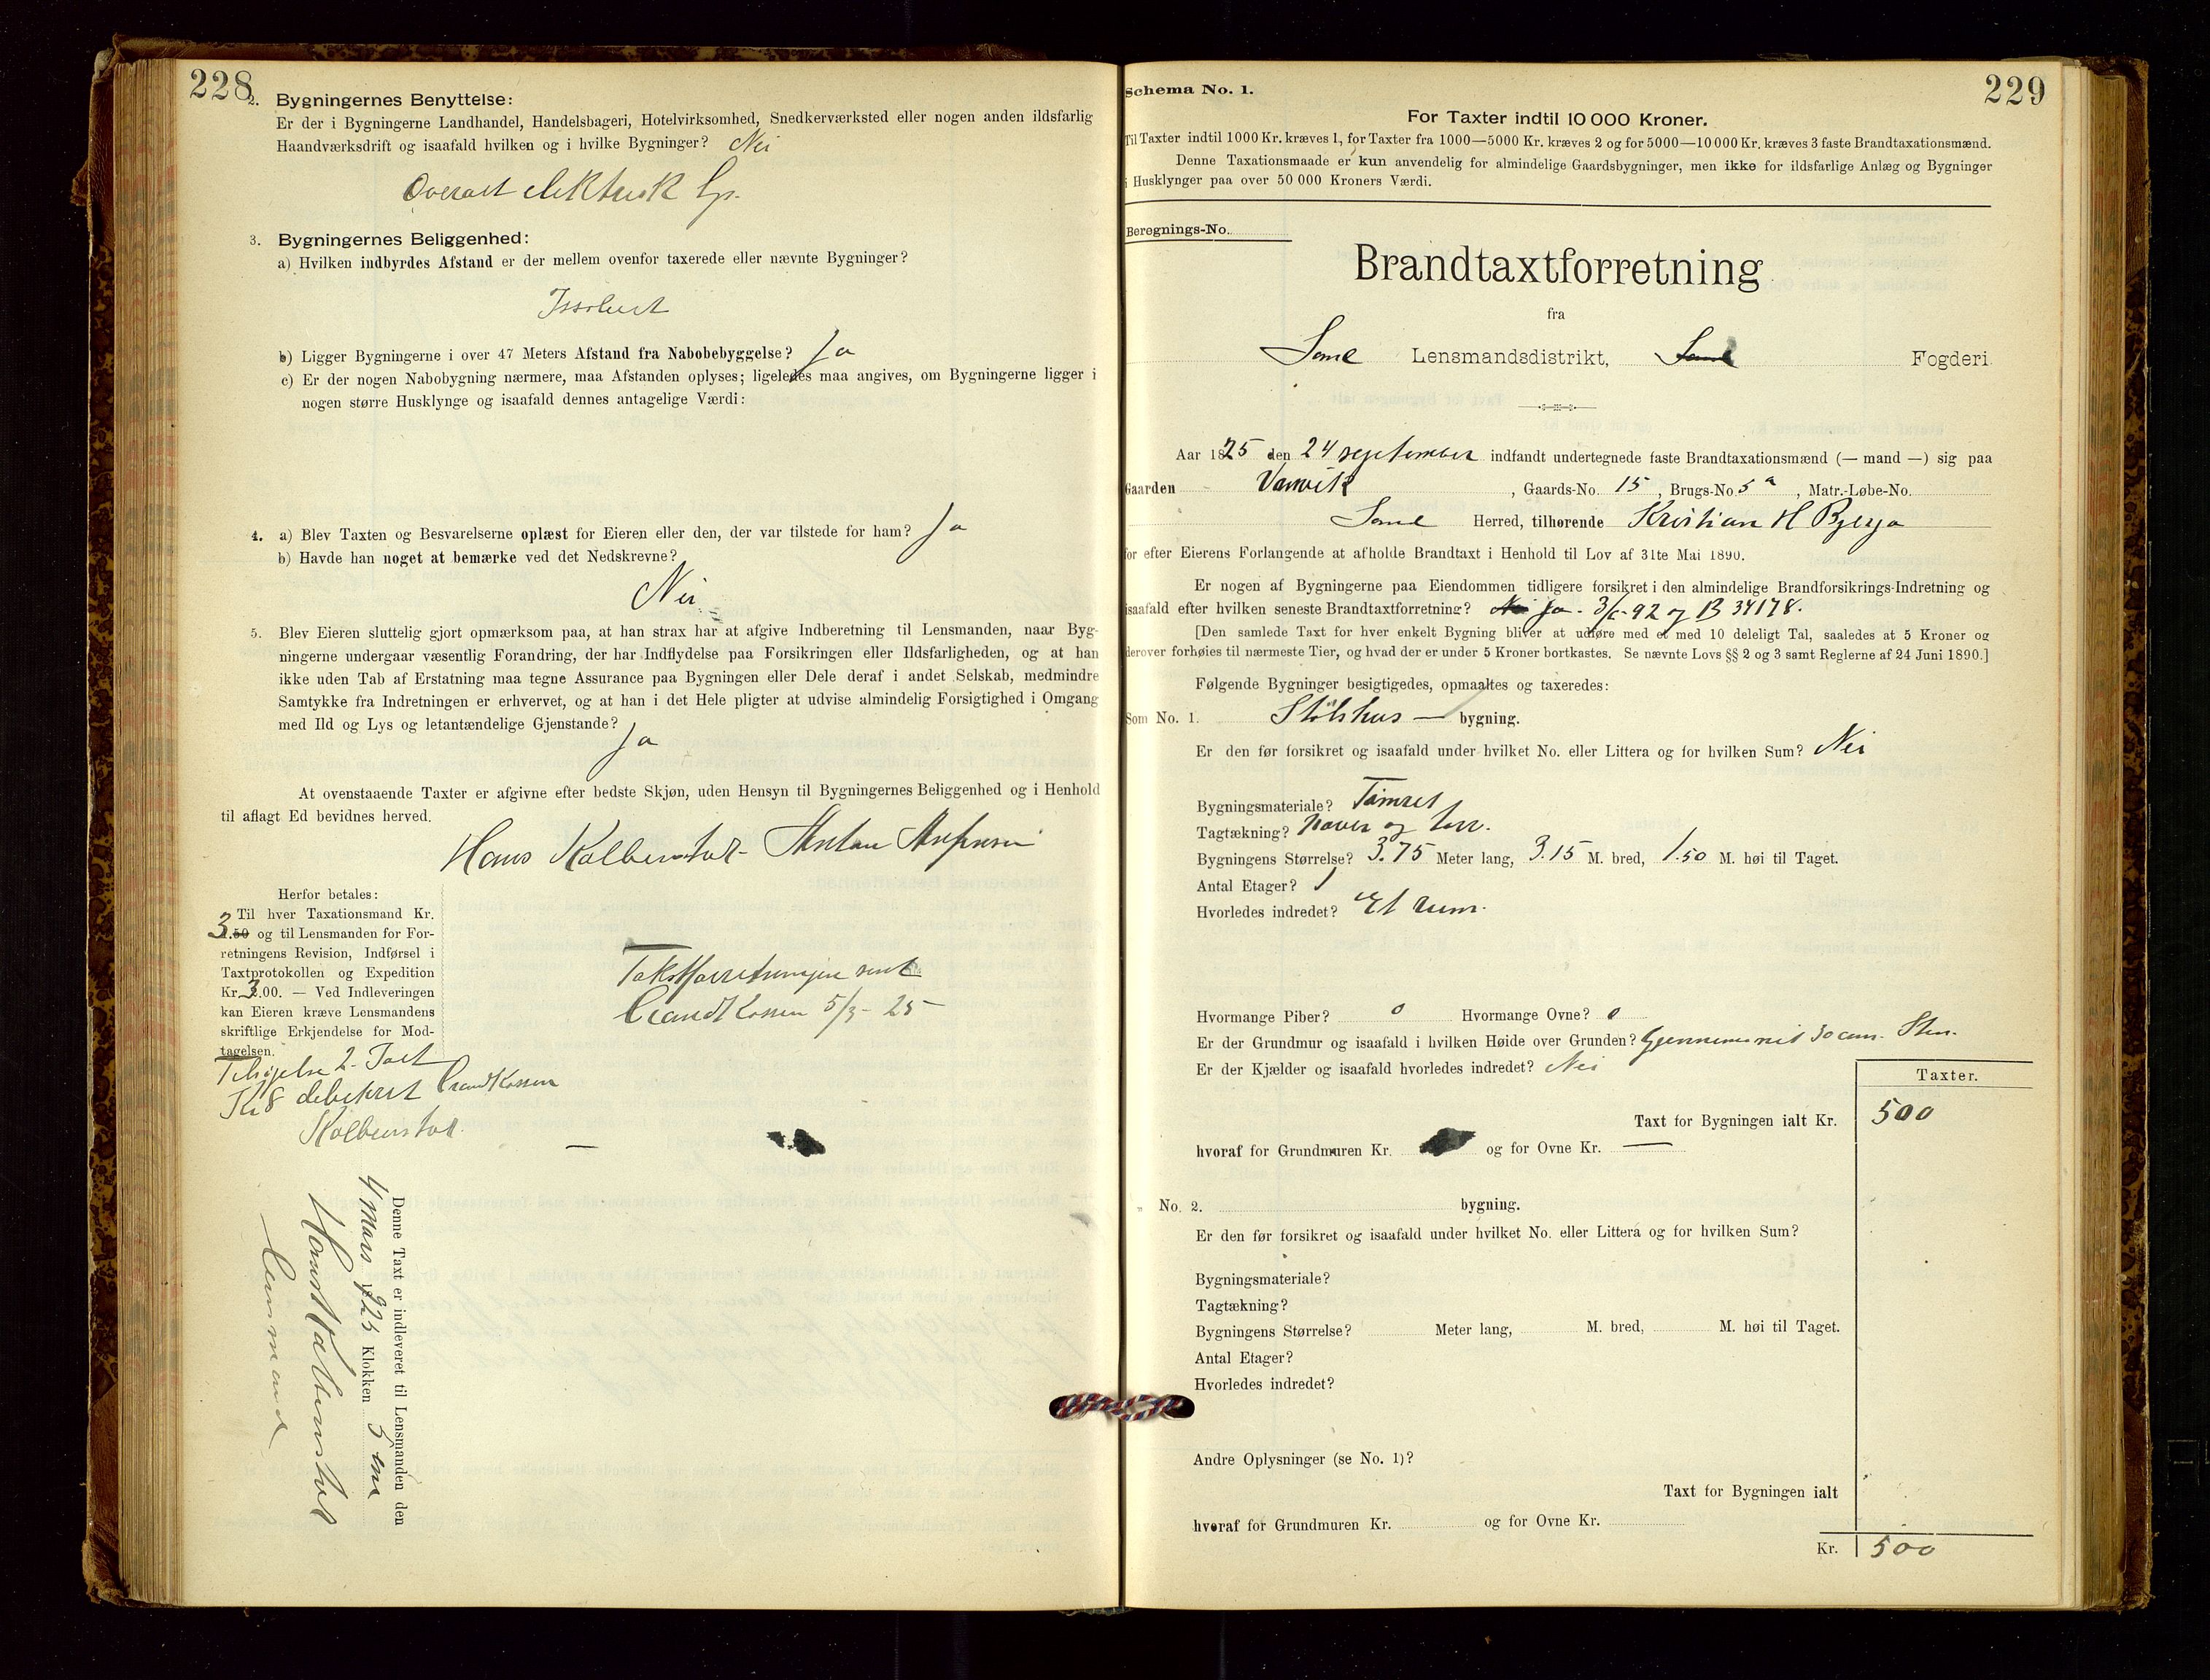 228
2. Bygningernes Benyttelse:
Er der i Bygningerne Landhandel, Handelsbageri, Hotelvirksomhed, Snedkerværksted eller nogen anden ildsfarlig
Haandværksdrift og isaafald hvilken og i hvilke Bygninger? Nei
Overalt elektrisk lys.
3. Bygningernes Beliggenhed:
a) Hvilken indbyrdes Afstand er der mellem ovenfor taxerede eller nævnte Bygninger?
Issolert
b) Ligger Bygningerne i over 47 Meters Afstand fra Nabobebyggelse? Ja
c) Er der nogen Nabobygning nærmere, maa Afstanden oplyses; ligeledes maa angives, om Bygningerne ligger i
nogen større Husklynge og isaafald dennes antagelige Værdi:
4. a) Blev Taxten og Besvarelserne oplæst for Eieren eller den, der var tilstede for ham? Ja
b) Havde han noget at bemærke ved det Nedskrevne?
Nei
5. Blev Eieren sluttelig gjort opmærksom paa, at han strax har at afgive Indberetning til Lensmanden, naar Byg-
ningerne undergaar væsentlig Forandring, der har Indflydelse paa Forsikringen eller Ildsfarligheden, og at han
ikke uden Tab af Erstatning maa tegne Assurance paa Bygningen eller Dele deraf i andet Selskab, medmindre
Samtykke fra Indretningen er erhvervet, og at han i det Hele pligter at udvise almindelig Forsigtighed i Omgang
med Ild og Lys og letantændelige Gjenstande?
Ja
At ovenstaaende Taxter er afgivne efter bedste Skjøn, uden Hensyn til Bygningernes Beliggenhed og i Henhold
til aflagt Ed bevidnes herved.
Hans Kolbenstvet
Herfor betales:
Til hver Taxationsmand Kr.
3.50 og til Lensmanden for For-
retningens Revision, Indførsel i
Taxtprotokollen og Expedition
Kr. 3.00. — Ved Indleveringen
kan Eieren kræve Lensmandens
skriftlige Erkjendelse for Mod-
tagelsen.
Takstforretningen sent
Brandkassen 5/3 - 25
Kr 8 debitert Brandkassen
Denne Taxt er indleveret til Lensmanden den
4 Mars 1925 Klokken 5 em
lensmand
229
Schema No. 1.
For Taxter indtil 10 000 Kroner.
Til Taxter indtil 1000 Kr. kræves 1, for Taxter fra 1000—5000 Kr. kræves 2 og for 5000—10 000 Kr. kræves 3 faste Brandtaxationsmænd.
Denne Taxationsmaade er kun anvendelig for almindelige Gaardsbygninger, men ikke for ildsfarlige Anlæg og Bygninger
i Husklynger paa over 50 000 Kroners Værdi.
Beregnings-No.
Brandtaxtforretning
fra
Sand Lensmandsdistrikt, Sand Fogderi
Aar 1825 den 24 september indfandt undertegnede faste Brandtaxationsmænd (— mand —) sig paa
Gaarden Vanvik, Gaards-No. 15, Brugs-No. 5 a, Matr.-Løbe-No.
Sand Herred, tilhørende Kristian H
for efter Eierens Forlangende at afholde Brandtaxt i Henhold til Lov af 31te Mai 1890.
Er nogen af Bygningerne paa Eiendommen tidligere forsikret i den almindelige Brandforsikrings-Indretning og
isaafald efter hvilken seneste Brandtaxtforretning? Nei Ja - 92 og B 34178.
[Den samlede Taxt for hver enkelt Bygning bliver at udføre med et med 10 deleligt Tal, saaledes at 5 Kroner og
derover forhøies til nærmeste Tier, og hvad der er under 5 Kroner bortkastes. Se nævnte Lovs §§ 2 og 3 samt Reglerne af 24 Juni 1890.]
Følgende Bygninger besigtigedes, opmaaltes og taxeredes:
Som No. 1. Stølshus — bygning.
Er den før forsikret og isaafald under hvilket No. eller Littera og for hvilken Sum? Nei
Bygningsmateriale? Tømret
Tagtækning? Næver og torv.
Bygningens Størrelse? 3.75 Meter lang, 3.15 M. bred, 1.50 M. høi til Taget.
Antal Etager? 1
Hvorledes indredet? Et rum.
Hvormange Piber? 0 Hvormange Ovne? 0
Er der Grundmur og isaafald i hvilken Høide over Grunden? Gjennemsnit 30 cm. Sten.
Er der Kjælder og isaafald hvorledes indredet? Nei
Taxter.
Taxt for Bygningen ialt Kr. 500
hvoraf for Grundmuren Kr. og for Ovne Kr. —
" No. 2. bygning.
Er den før forsikret og isaafald under hvilket No. eller Littera og for hvilken Sum?
Bygningsmateriale?
Tagtækning?
Bygningens Størrelse? Meter lang, M. bred, M. høi til Taget.
Antal Etager?
Hvorledes indredet?
Andre Oplysninger (se No. 1)?
Taxt for Bygningen ialt
hvoraf for Grundmuren Kr. og for Ovne Kr.
Kr. 500